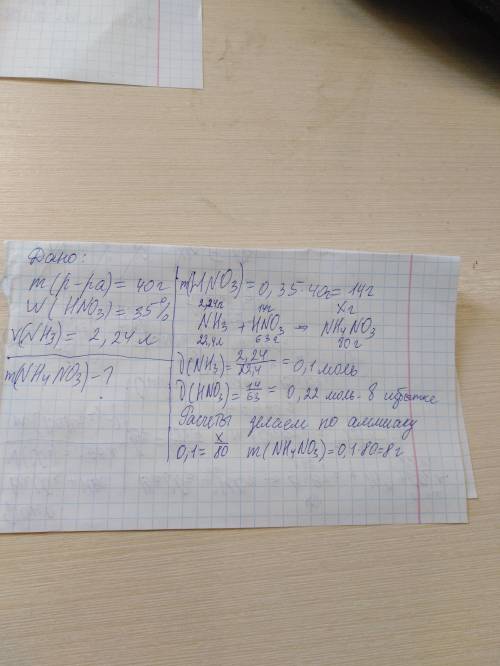 Дано:
m(р-ра) = 40г
W(HNO3) = 35%
V(NH3) = 2,24 л
m(NH4NO3) - ?
m(HNO3) = 0,35·40г = 14г
2,24л 14г Xг
NH3 + HNO3 → NH4NO3
22,4л 63г 80г
ν(NH3) = 2,24/22,4 = 0,1 моль
ν(HNO3) = 14/63 = 0,22 моль - в избытке
Расчеты делаем по аммиаку
0,1 = x/80 m(NH4NO3) = 0,1·80 = 8г